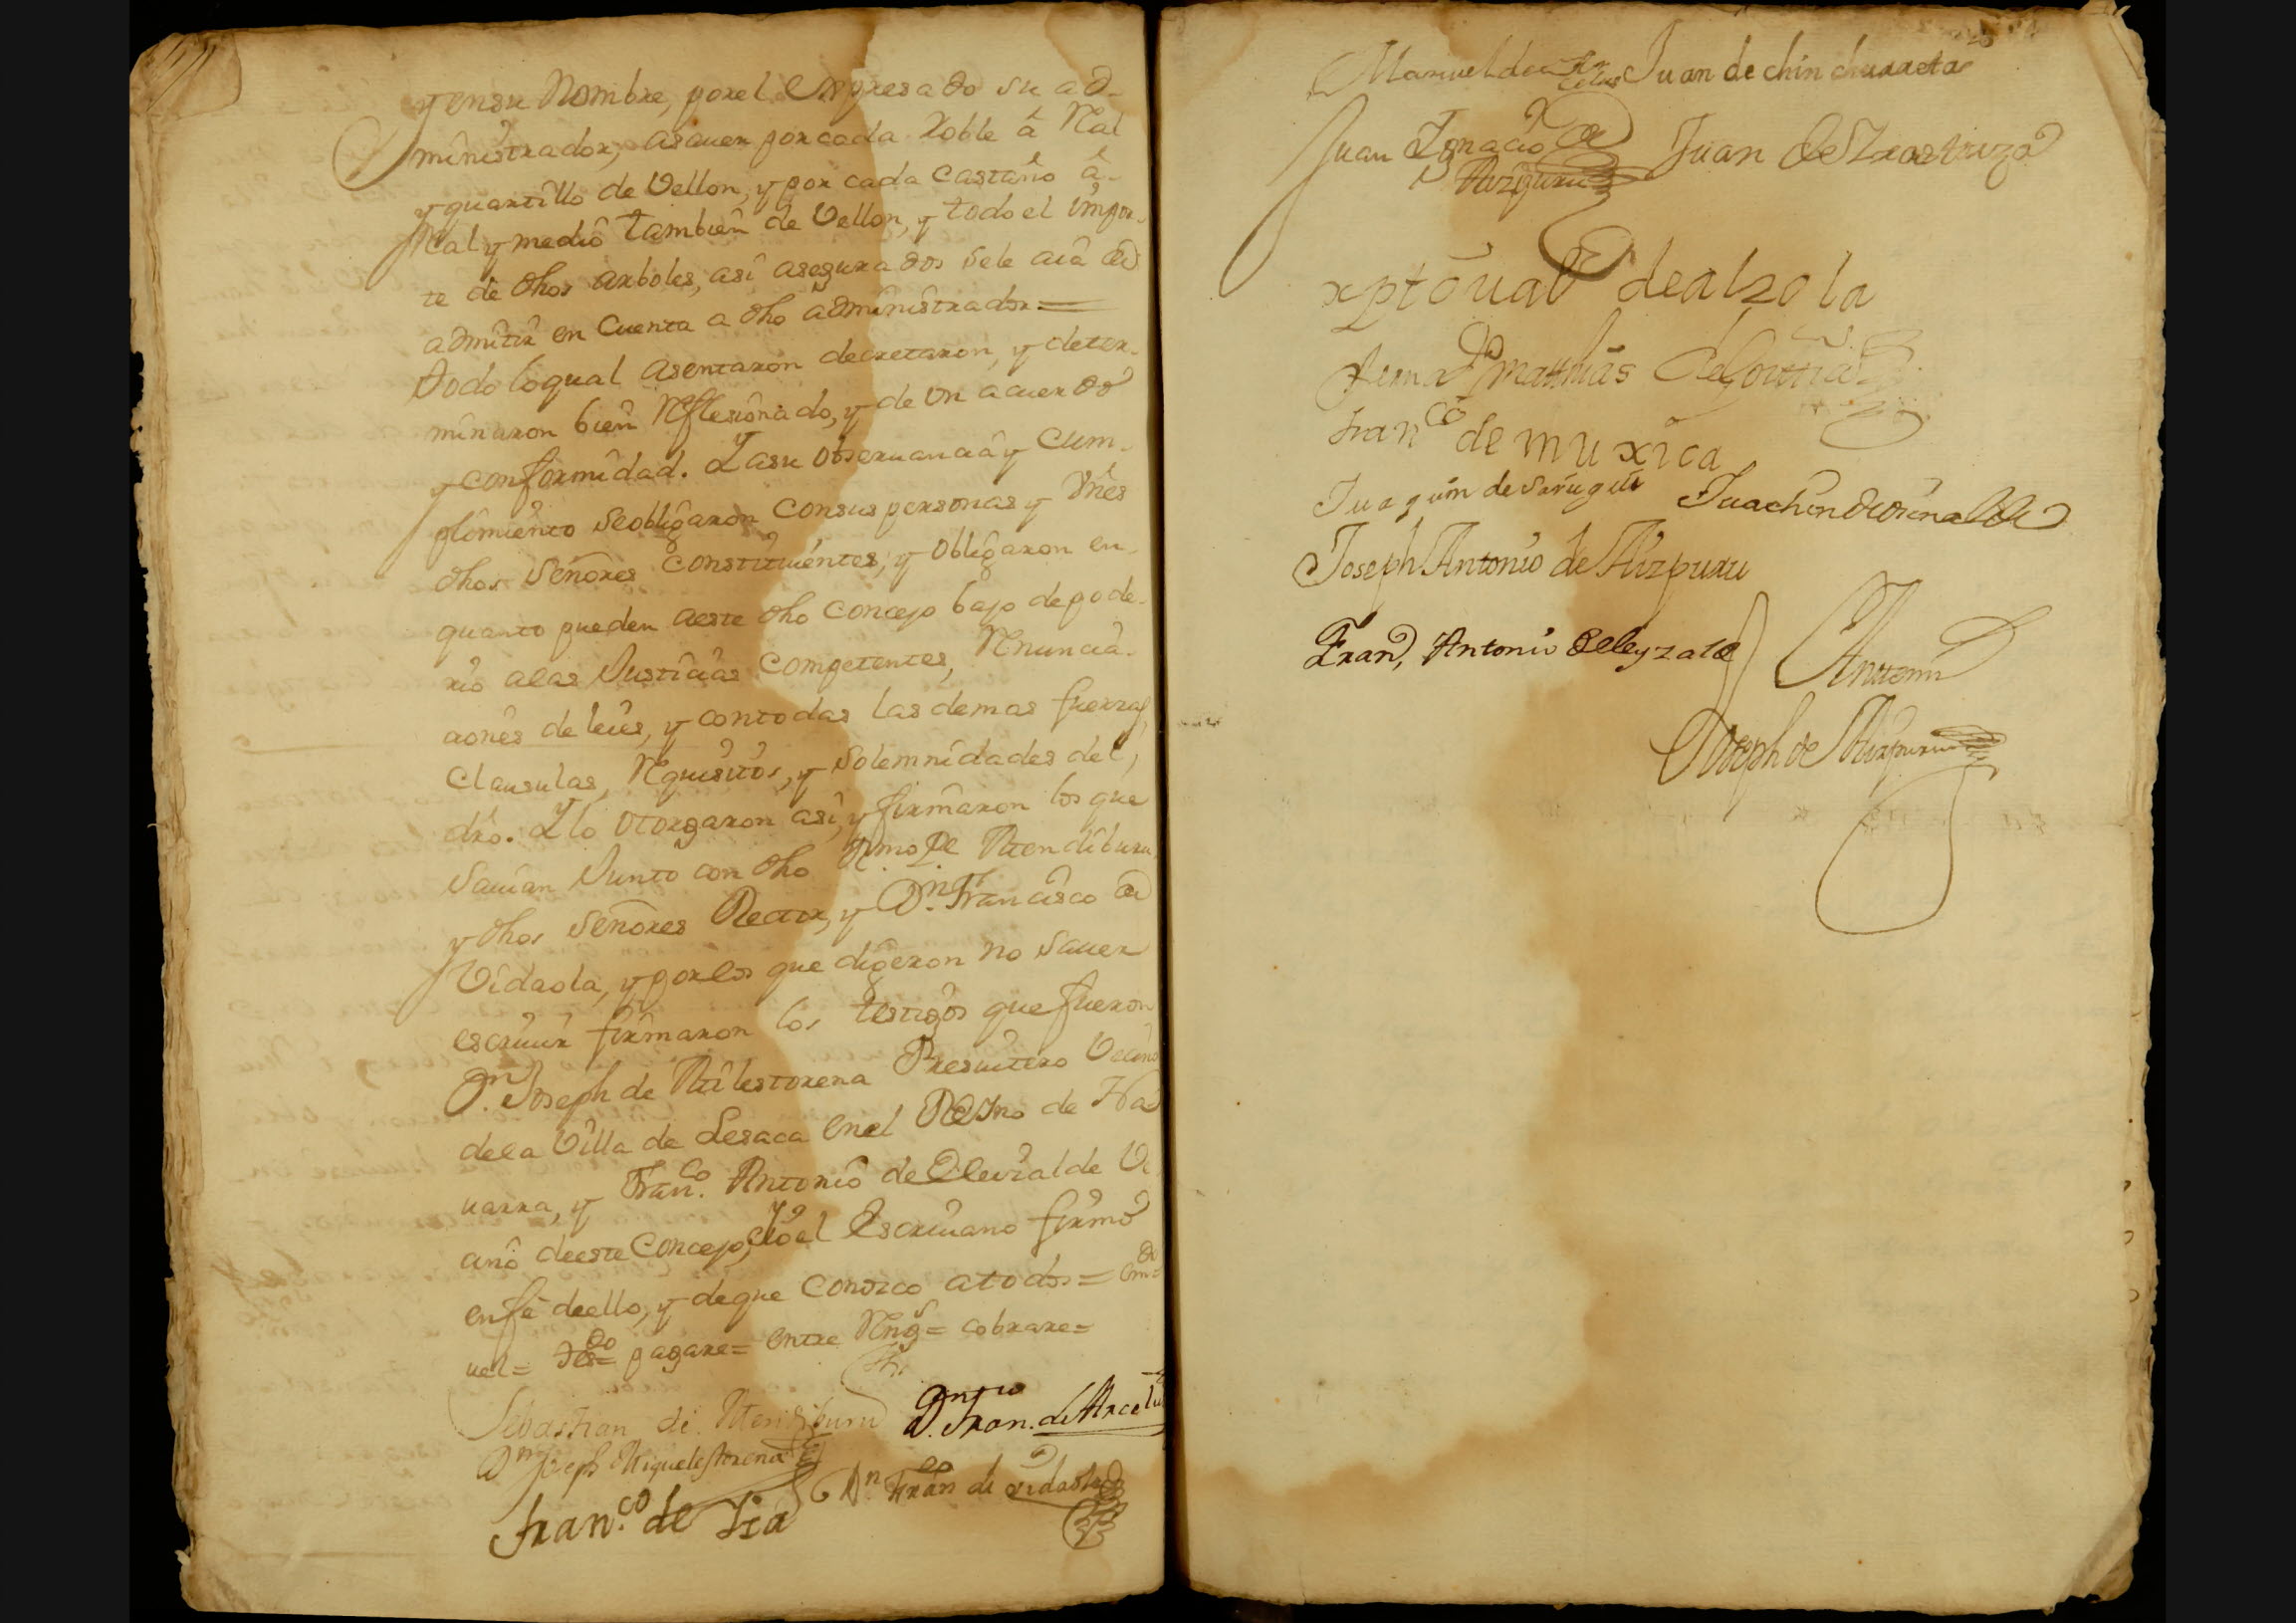 y en su Nombre, por el Expresado su ad-
ministrador, asauer por cada Roble â Real
y quartillo de Vellon, y por cada castaño â
Real y medio tambien de Vellon, y todo el impor-
te de dhos arboles, asi asegurados se le aia de
admitir en Cuenta a dho administrador =
Todo lo qual asentaron decretaron, y deter-
minaron bien Reflesionado, y de un acuerdo
y conformidad. Y a su obseruancia y cum-
plimiento se obligaron con sus personas y vnes
dhos Señores Constituientes, y obligaron en
quanto pueden a este dho concejo bajo de pode-
rio a las Justicias Competentes, Renuncia-
ciones de leies, y con todas las demas fuerzas,
Clausulas, Requisitos, y solemnidades del
dro. Y lo otorgaron asi, y firmaron los que
sauian Junto con dho Rmo Pe Mendiburu
y dhos Señores Rector, y Dn. Francisco de
Vidaola, y por los que digeron no sauer
escriuir firmaron los testigos que fueron
Dn. Joseph de Miquelestorena Presuitero Vecino
de la Villa de Lesaca en el Reyno de Na
uarra, y Franco. Antonio de Olevialde Ve
cino de este Concejo, Yo el Escriuano firmo
en fe de ello, y de que conozco a todos = emdo
uel = Tesdo = pagare = entre Rengs = cobrare =
Sebastian de Mendiburu Dn Fran.co de Arcelus
Dn Joseph Miquelestorena
Fran.co de Via Dn Franco de Vidaola
Manuel de Arcelus Juan de chinchurreta
Juan Ignacio de Aizpuru Juan de Lrastriza
xptoual de alzola
Ferndo Matthias de Goittia
Franco de muxica
Juaquin de Sarugui Juachin de
Joseph Antonio de Aizpuru
Fran, Antonio de leyzalde Anttemi
Joseph de Aizpuru